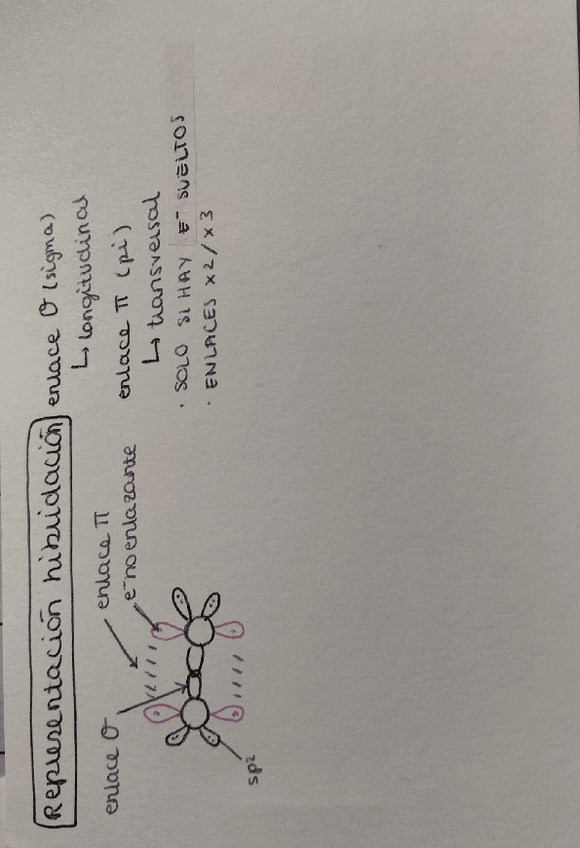 Representación hibridación
enlace σ (sigma)
↳ longitudinal
enlace π (pi)
↳ transversal
· SOLO SI HAY e⁻ SUELTOS
· ENLACES x2/x3
enlace σ
enlace π
e⁻ no enlazante
sp²